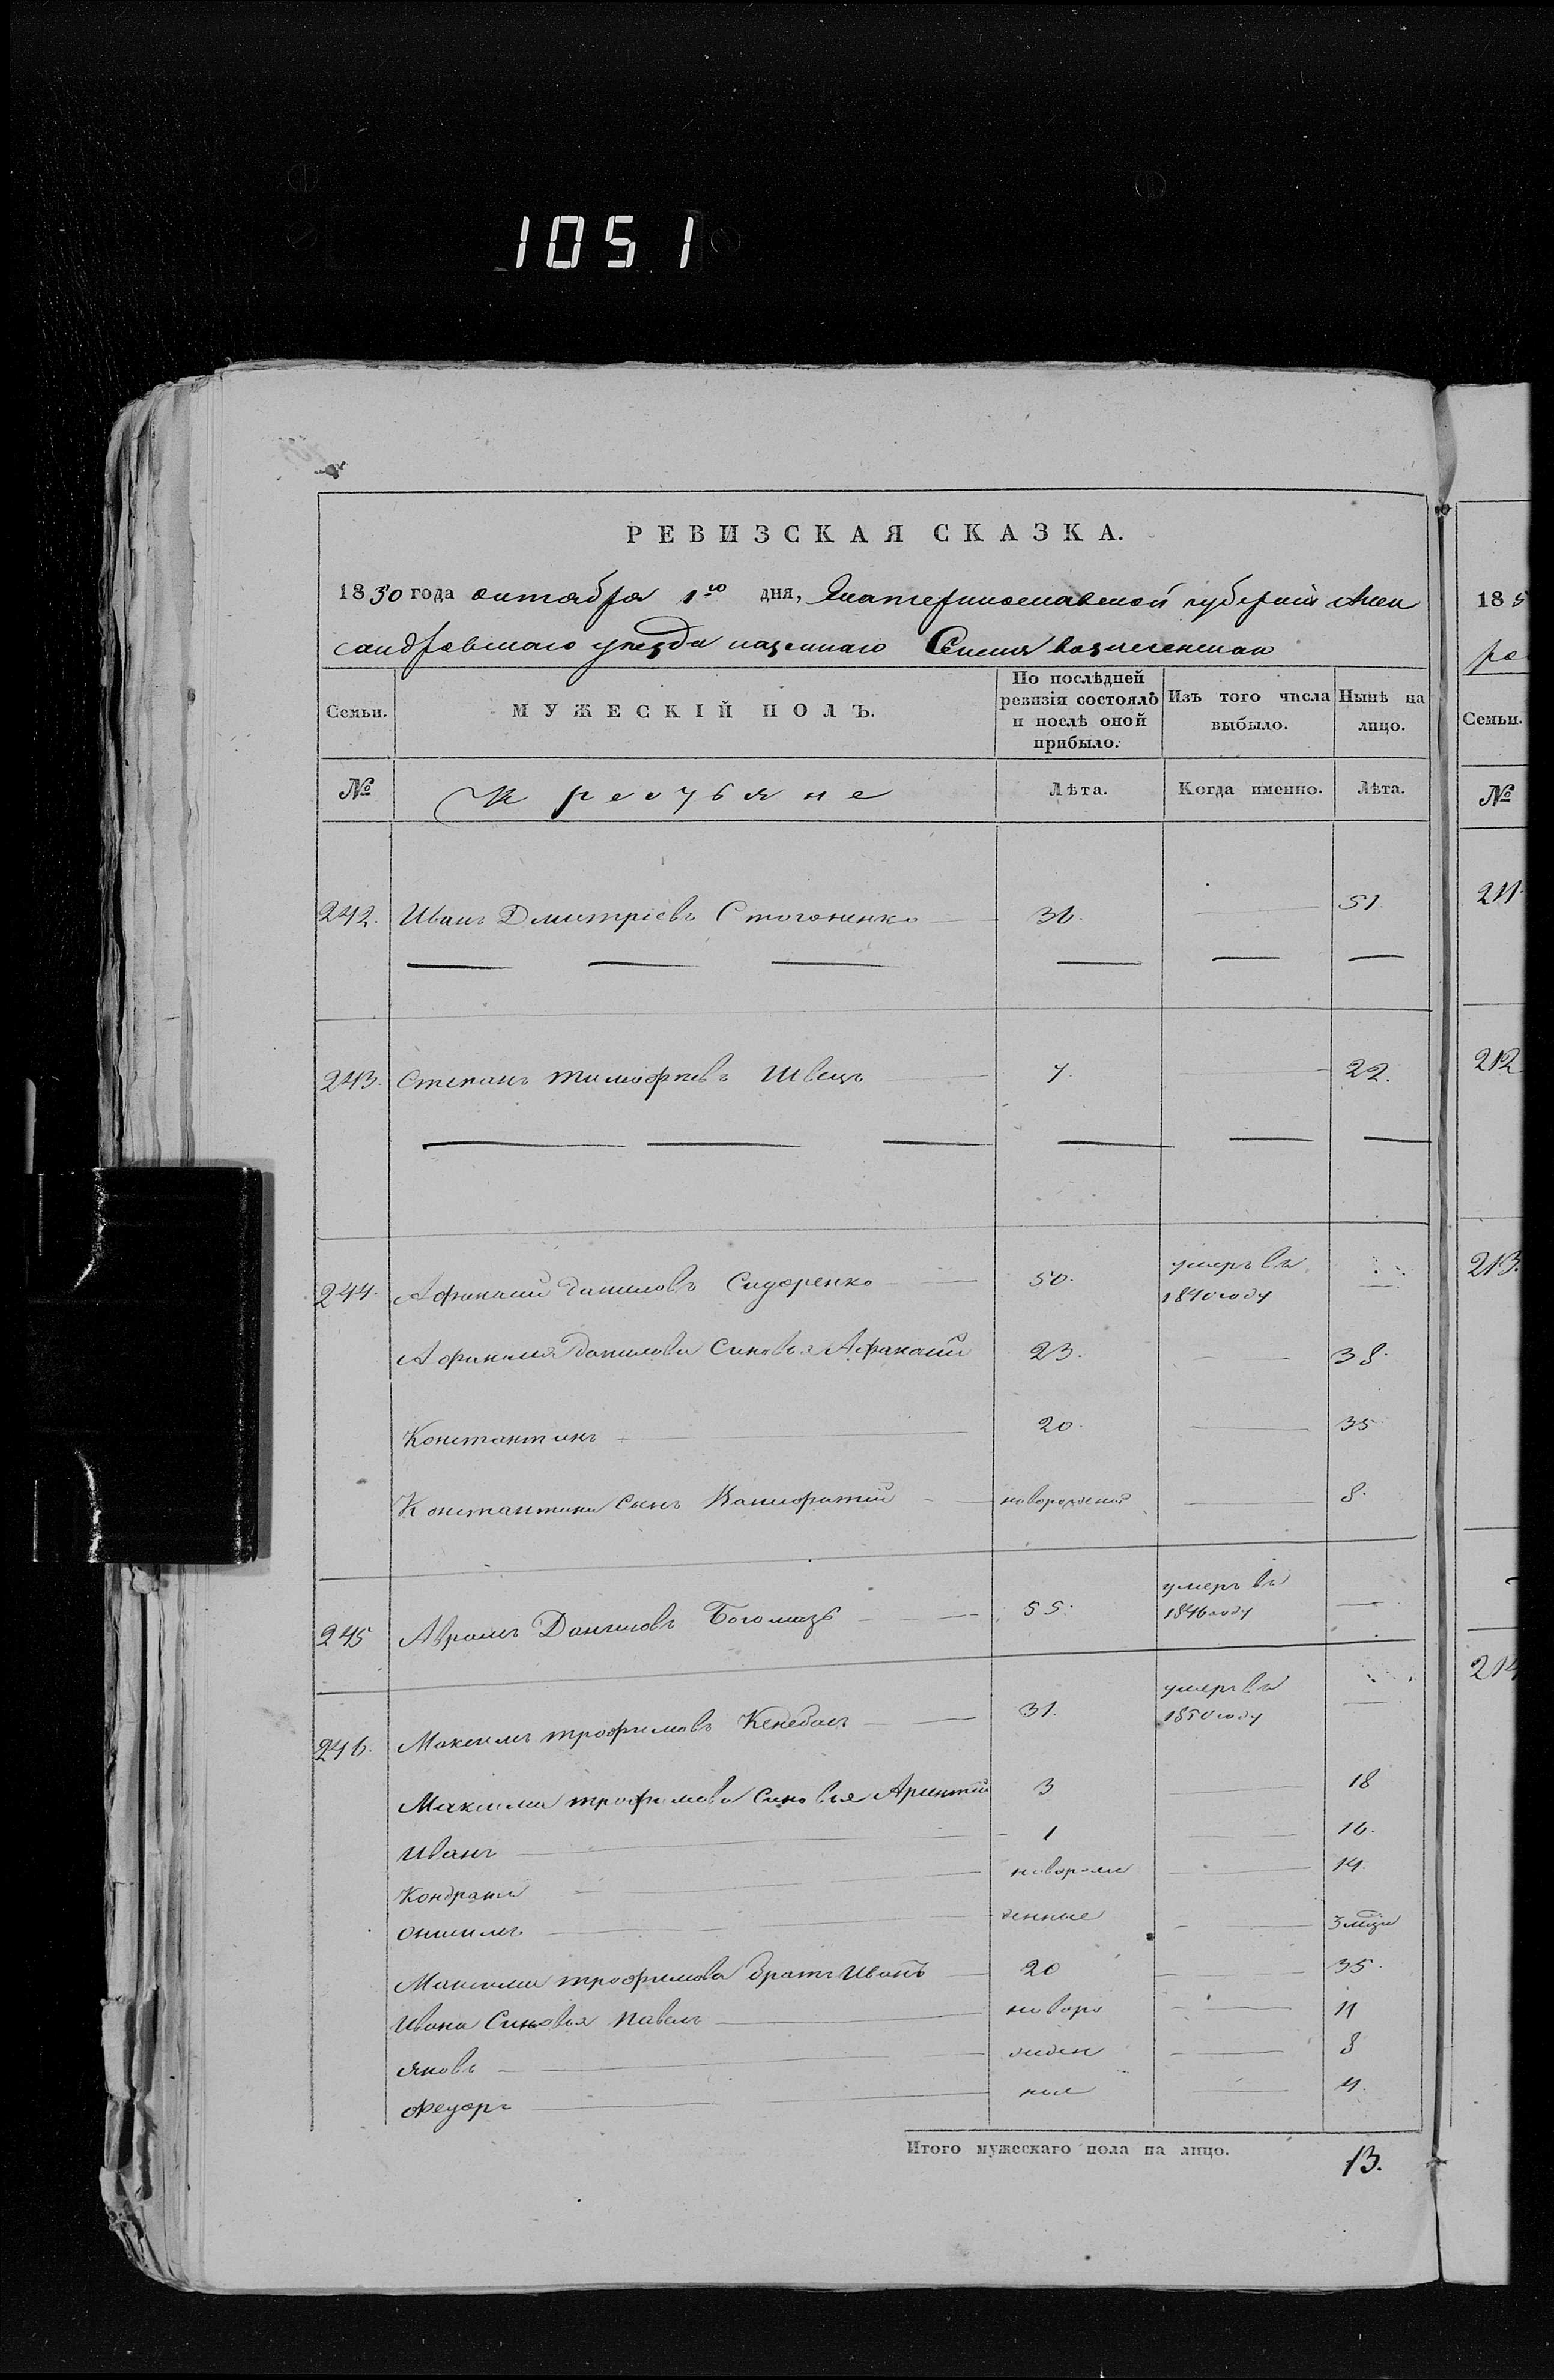 1051
РЕВИЗСКАЯ СКАЗКА.
1850 года октября 1го дня, Екатеринославской губернии Алек
сандровскаго уезда казеннаго Селения Вознесенскаго
Семьи. МУЖЕСКІЙ ПОЛЪ. По послѣдней ревизіи состояло и послѣ оной прибыло. Изъ того числа выбыло. Нынѣ на лицо.
№ Крестьяне Лѣта. Когда именно. Лѣта.
242. Иванъ Дмитріевъ Стогоненко 36. 51.
243. Степанъ Тимофѣевъ Швецъ 7. 22.
244. Афанасий Даниловъ Сидоренко 50. умеръ въ 1840 году
Афанасия Данилова Синовья Афанасий 23. 38.
Константинъ 20. 35
Константина Сынъ новорожденой 8.
245 Аврамъ Даниловъ Богомазъ 55. умеръ въ 1846 году
246. Максимъ трофимовъ умеръ въ 31. 1850 году
Максима трофимова Сыновья 3 18
Иванъ 1 16.
Кондратий новорож 14.
онисимъ денные 3 мцы
Максима трофимова братъ Иванъ 20 35.
Ивана Сыновья Павелъ новоро 11
Яковъ жден 8
Федоръ ные 4.
Итого мужескаго пола на лицо. 13.
185
Семьи.
№
211.
212
213.
214